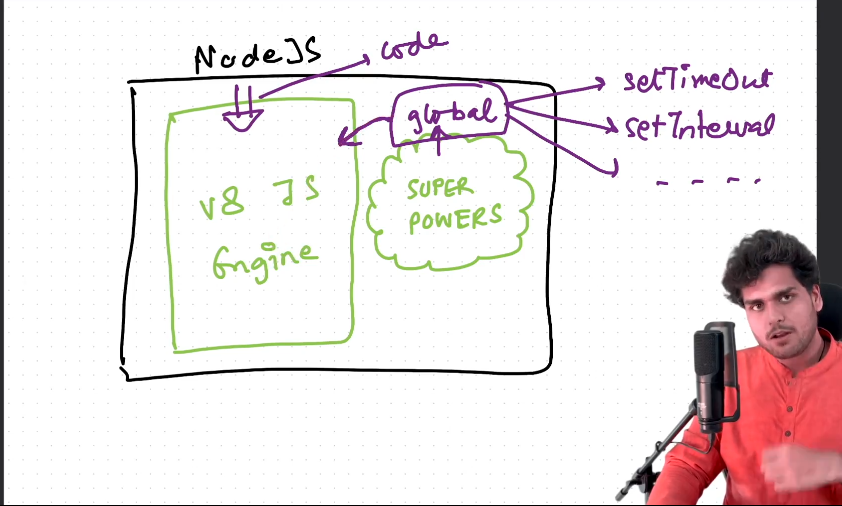 NodeJS
code
global
setTimeOut
setInterval
- - - -
V8 JS
Engine
SUPER
POWERS